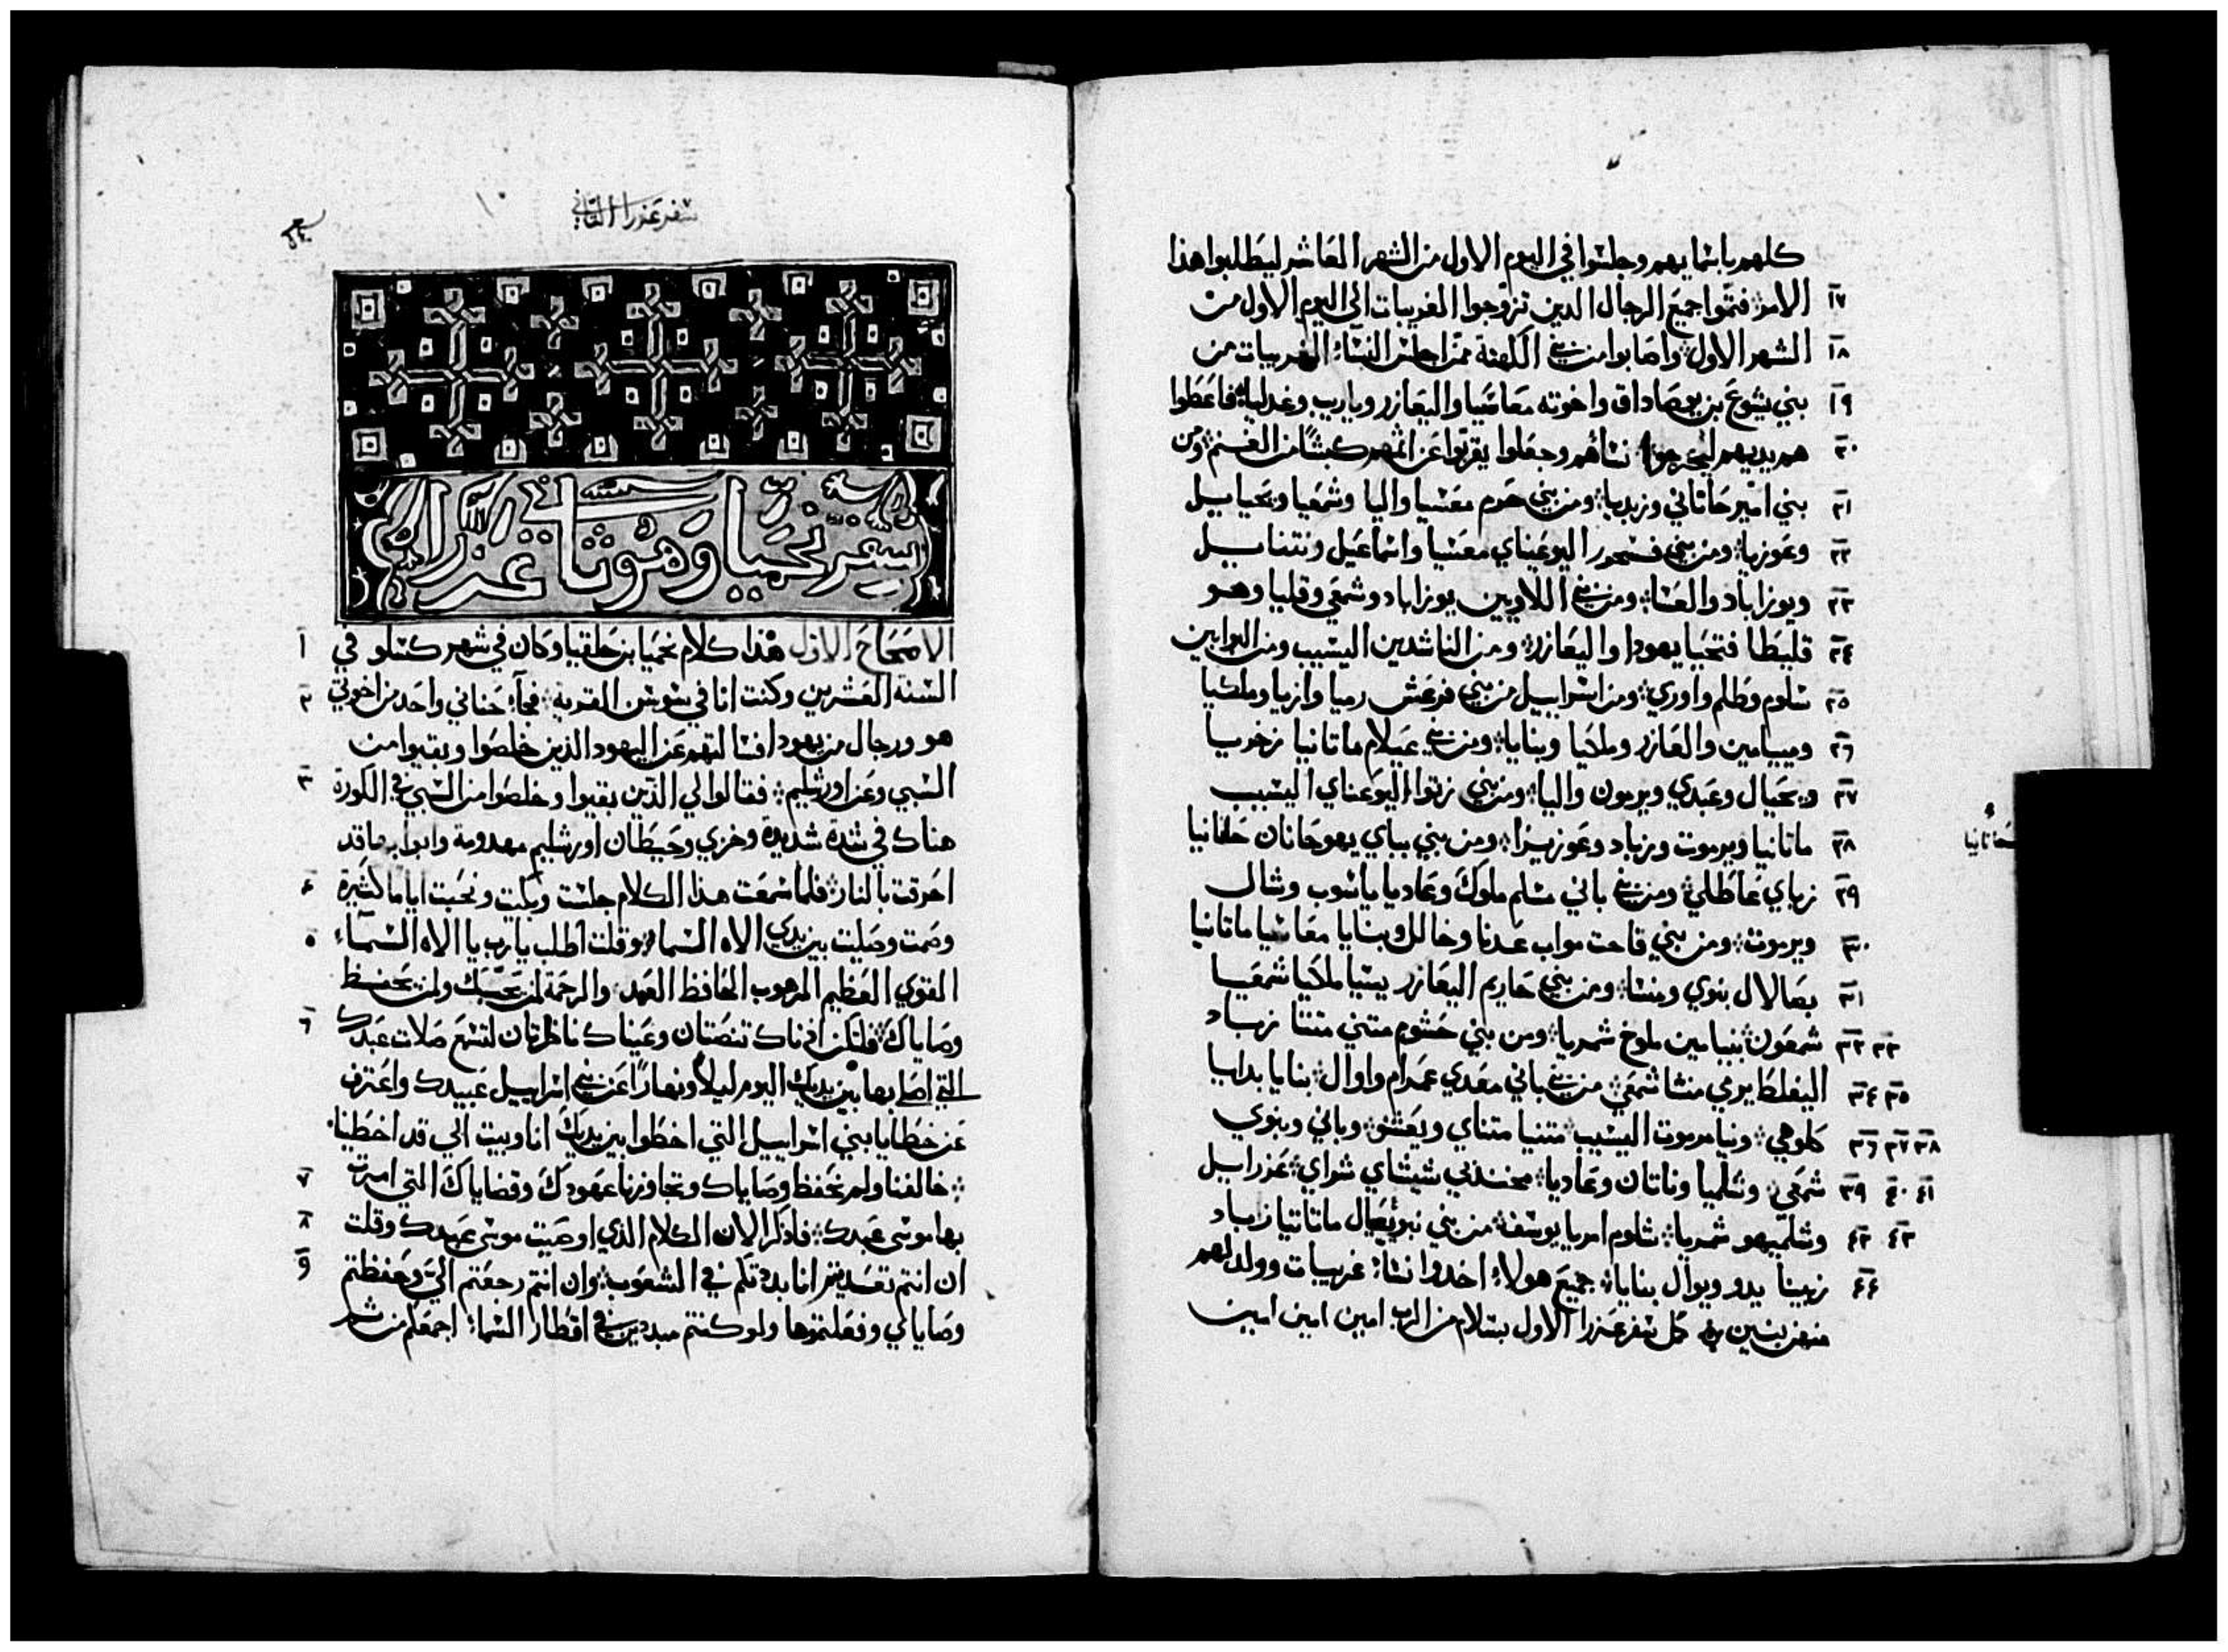 كلهم باسمايهم وجلسوا في اليوم الاول من الشهر العاشر ليطلبوا هذا
١٧ الامر فتموا جميع الرجال الدين تزوجوا الغريبات الى اليوم الاول من
١٨ الشهر الاول واصابوا من بني الكهنة ممن اجلس النساء الغريبات من
١٩ بني يشوع بن يوصاداق واخوته معاسيا واليعازر وياريب وغدليا فاعطوا
٢٠ هم يديهم ليخرجوا نساهم وجعلوا يقربوا عن اثمهم كبشًا من الغنم ومن
٢١ بني امير حاناني وزبديا ومن بني حرم معسيا واليا وشمعيا ويحياييل
٢٢ وعوزيا ومن بني فسحور اليوعيناي معسيا واسماعيل ونتناييل
٢٣ ويوزاباد والعسا ومن بني اللاويين يوزاباد وشمعي وقليا وهو
٢٤ قليطا فتحيا يهودا واليعازر ومن الناشدين اليسيب ومن البوابين
٢٥ سلوم وطلم واوري ومن اسراييل من بني فرعش رميا وازيا وملكيا
٢٦ وميامين والعازر وملخيا وبنايا ومن بني عيلام ماتانيا زخريا
٢٧ ويحيال وعبدي ويريمون واليا ومن بني زتوا اليوعناي اليسيب
٢٨ ماتانيا ويرموت وزباد وعوزيزا ومن بني بباي يهوحانان حانانيا
حانانيا
٢٩ زباي عاطلي ومن بني باني مسلم ملوك وعاديا ياسوب وشال
٣٠ ويرموت ومن بني قاحت مواب عدنا وخالل وبنايا معاسيا ماتانيا
٣١ بصالال بنوي ومنسا ومن بني حاريم اليعازر يسيا ملخيا شمعيا
٣٢ ٣٣ شمعون بنيامين ملوخ شمريا ومن بني حشوم متني متتا زباد
٣٤ ٣٥ اليفلط يرمي منشا شمعي من بني باني معدي عمرام واوال بنايا بدايا
٣٦ ٣٧ ٣٨ كلوهي ونيا مرموت اليسيب متنيا متناي ويعشو وباني وبنوي
٣٩ ٤٠ ٤١ شمعي وشلميا وناتان وعاديا مخندبي شيشاي شراي عزراييل
٤٢ ٤٣ وشلميهو شمريا شلوم امريا يوسف من بني نبو يعيال ماتاتيا زباد
٤٤ زبينا يدو ويوال بنايا جميع هولاء اخدوا نساء غريبات وولد لهم
منهن بنين كمل سفر عزرا الاول بسلام من الرب امين امين امين
سفر عزرا الثاني
سفر نحميا وهو ثاني عزرا
١ الاصحاح الاول هذا كلام نحميا بن حلقيا وكان في شهر كسلو في
٢ السنة العشرين وكنت انا في سوسن القرية فجاء حناني واحد من اخوتي
هو ورجال من يهودا فسالتهم عن اليهود الذين خلصوا وبقيوا من
٣ السبي وعن اورشليم فقالوا لي الذين بقيوا وخلصوا من السبي في الكورة
هناك في شدة شديدة وخزي وحيطان اورشليم مهدومة وابوابها قد
٤ احرقت بالنار فلما سمعت هذا الكلام جلست وبكيت ونحبت اياما كثيرة
٥ وصمت وصليت بين يدي الاه السماء وقلت اطلب يارب يا الاه السماء
القوي العظيم المرهوب الحافظ العهد والرحمة لمن يحبك ولمن يحفظ
٦ وصاياك فلتكن اذناك تنصتان وعيناك ناظرتان لتسمع صلات عبدك
التي اصلي بها بين يديك اليوم ليلا ونهارًا عن بني اسراييل عبيدك واعترف
عن خطايا بني اسراييل التي اخطوا بين يديك انا وبيت ابي قد اخطينا
٧ خالفنا ولم نحفظ وصاياك وتجاوزنا عهودك وقضاياك التي امرت
٨ بها موسى عبدك فاذكر الان الكلام الذي اوصيت موسى عبدك وقلت
٩ ان انتم تعديتم انا بددتكم في الشعوب وان انتم رجعتم الي وحفظتم
وصاياي وفعلتموها ولو كنتم مبددين في اقطار السماء اجمعكم من